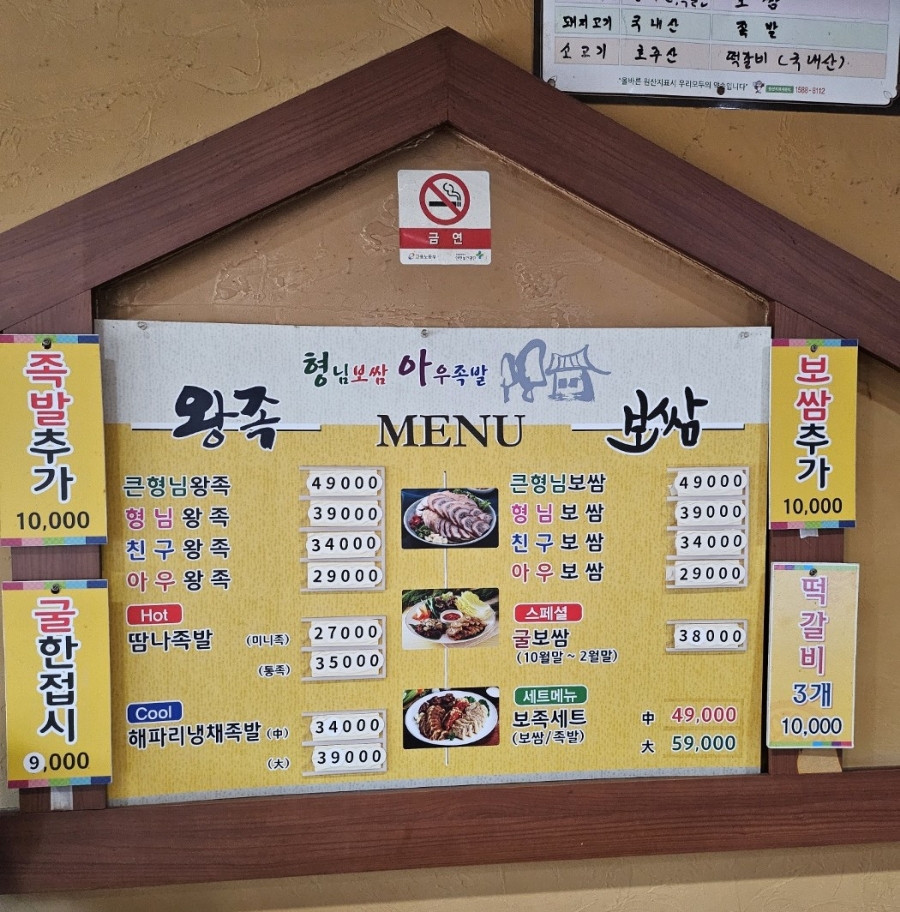 돼지고기 국내산 족발
소고기 호주산 떡갈비 (국내산)
"올바른 원산지표시 우리모두의 약속입니다" 1588-8112
금연
족발추가
10,000
굴한접시
9,000
형님보쌈 아우족발
왕족 MENU 보쌈
큰형님왕족 49000
형님왕족 39000
친구왕족 34000
아우왕족 29000
Hot
땀나족발 (미니족) 27000
(통족) 35000
Cool
해파리냉채족발 (中) 34000
(大) 39000
큰형님보쌈 49000
형님보쌈 39000
친구보쌈 34000
아우보쌈 29000
스페셜
굴보쌈 38000
(10월말~2월말)
세트메뉴
보족세트 中 49,000
(보쌈/족발) 大 59,000
보쌈추가
10,000
떡갈비
3개
10,000